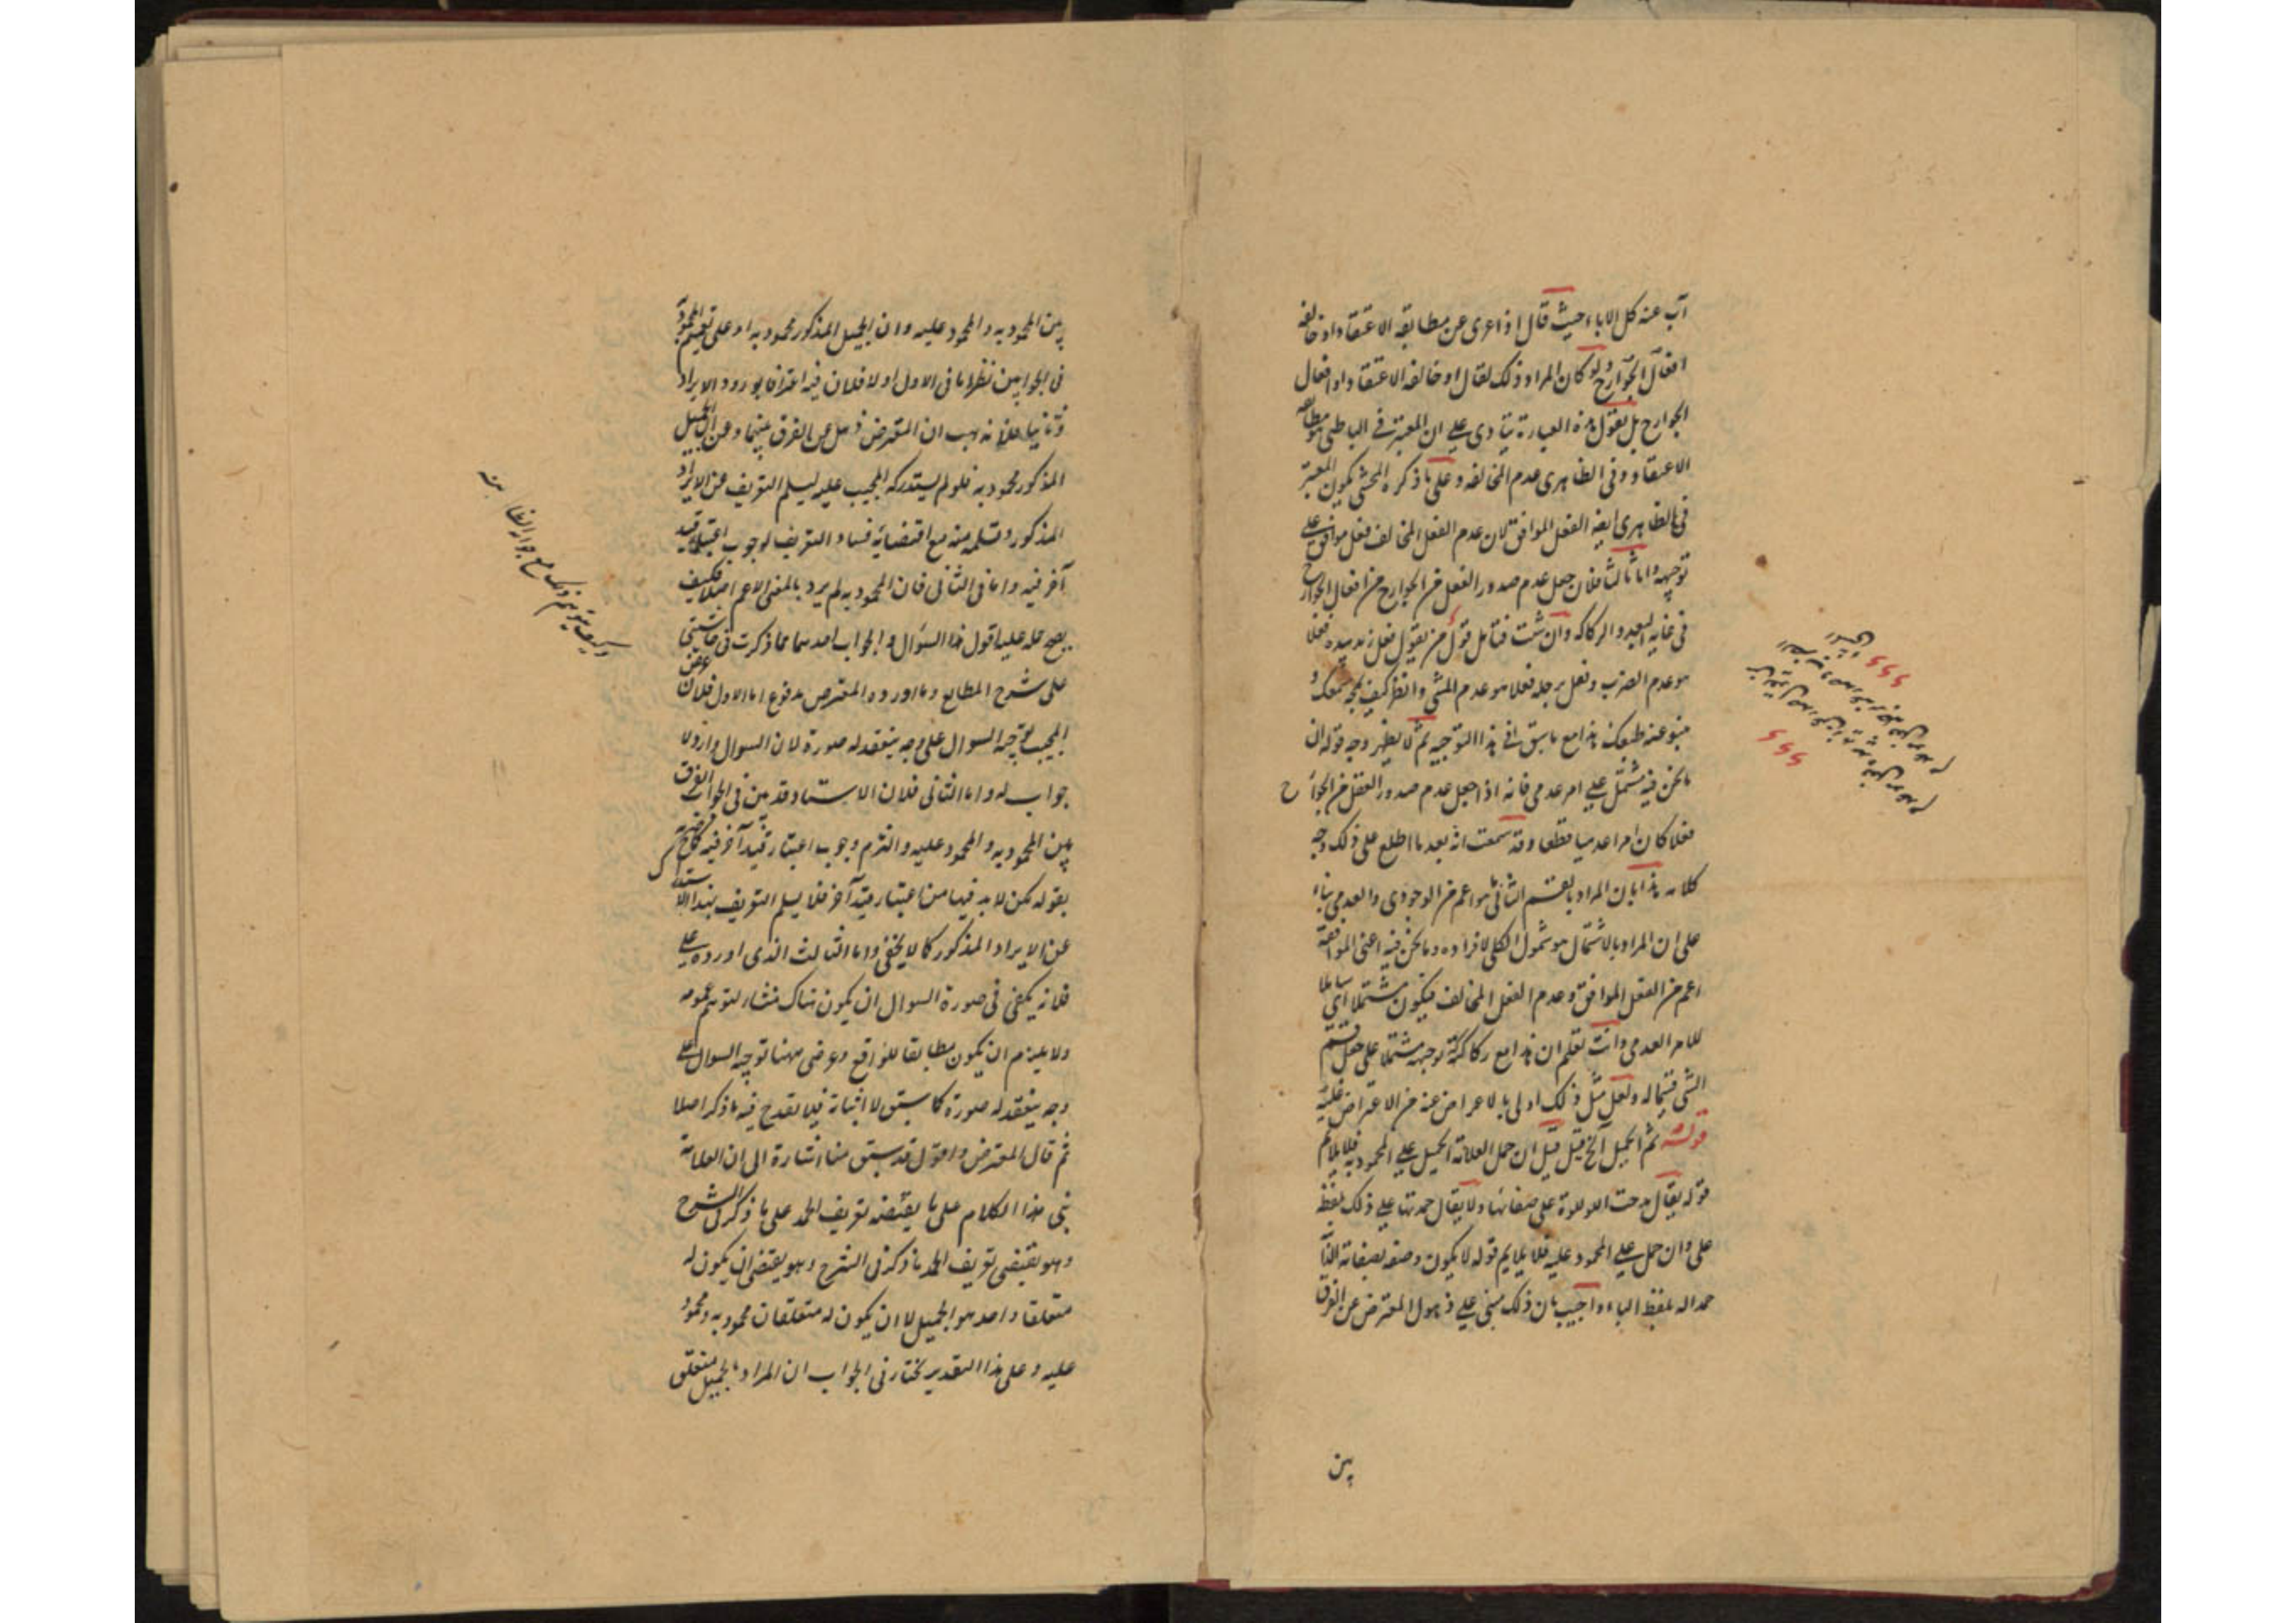 آب عنه كل الاباء حيث قال اذا عرى عن مطابقة الاعتقاد او خالفه
افعال الجوارح ولو كان المراد ذلك لقال او خالفه الاعتقاد او افعال
الجوارح بل نقول هذه العبارة تنادى على ان المعتبر فى الباطنى هو مطابقة
الاعتقاد وفى الظاهرى عدم المخالفة وعلى ما ذكره المحشى يكون المعتبر
فى الظاهرى ايضا الفعل الموافق لان عدم الفعل المخالف فعل موافق على
توجيهه واما ثالثا فلان جعل عدم صدور الفعل من الجوارح من افعال الجوارح
فى غاية البعد والركاكة وان شئت فتأمل قول من يقول فعل زيد بيده فعلا
هو عدم الضرب وفعل برجله فعلا هو عدم المشى وانظر كيف يمجه سمعك و
ينبو عنه طبعك هذا مع ما سبق فى هذا التوجيه ثم لا يظهر وجه قوله ان
ما نحن فيه مشتمل على امر عدمى فانه اذا جعل عدم صدور الفعل من الجوارح
فعلا كان امرا عدميا قطعا وقد سمعت انه بعد ما اطلع على ذلك وجه
كلامه هذا بان المراد بالقسم الثانى ما هو اعم من الوجودى والعدمى بناء
على ان المراد بالاشتمال هو شمول الكلى لافراده وما نحن فيه اعنى الموافقة
اعم من الفعل الموافق وعدم الفعل المخالف فيكون مشتملا اى شاملا
للامر العدمى وانت تعلم ان هذا مع ركاكة توجيهه مشتمل على جعل قسم
الشئ قسيما له ولعل مثل ذلك اولى بالاعراض عنه من الاعتراض عليه
قوله ثم الجميل الخ قيل ان حمل العلامة الجميل على المحمود به فلا يلائم
قوله يقال مدحت اللؤلؤة على صفائها ولا يقال حمدتها على ذلك بلفظ
على وان حمل على المحمود عليه فلا يلايم قوله لا يكون وصفه بصفاته الذاتية
حمدا له بلفظ الباء واجيب بان ذلك مبنى على ذهول المعترض عن الفرق
بين
بين المحمود به والمحمود عليه وان الجميل المذكور محمود به او على تعميم المحمود به
فى الجوابين نظر اما فى الاول اولا فلان فيه اعترافا بورود الايراد
وثانيا فلانه هب ان المعترض ذهل عن الفرق بينهما وعن ان الجميل
المذكور محمود به فلو لم يستدركه المجيب عليه ليسلم التعريف عن الايراد
المذكور وتسلمه منه مع اقتضائه فساد التعريف لوجوب اعتبار قيد
آخر فيه واما فى الثانى فان المحمود به لم يرد بالمعنى الاعم اصلا فكيف
يصح حمله عليه اقول هذا السؤال والجواب احدهما مما ذكرت فى حاشيتى
على شرح المطالع وما اورده المعترض مدفوع اما الاول فلان غرض
المجيب توجيه السؤال على وجه ينعقد له صورة لان السؤال وارد لا
جواب له واما الثانى فلان الاستاد قد بين فى الجواب الفرق
بين المحمود به والمحمود عليه والتزم وجوب اعتبار قيد آخر فيه كما صرح به
بقوله لكن لا بد فيها من اعتبار قيد آخر فلا يسلم التعريف بهذا الاستدراك
عن الايراد المذكور كما لا يخفى واما الثالث الذى اورده على
فلانه يكفى فى صورة السؤال ان يكون هناك منشاء لتوهم عمومه
ولا يلزم ان يكون مطابقا للواقع وغرضى ههنا توجيه السؤال على
وجه ينعقد له صورة كما سبق لا اثباته فلا يقدح فيه ما ذكر اصلا
ثم قال المعترض واقول قد سبق منا اشارة الى ان العلامة
بنى هذا الكلام على ما يقتضيه تعريف الحمد على ما ذكر فى الشرح
وهو يقتضى تعريف الحمد ما ذكر فى الشرح وهو يقتضى ان يكون له
متعلقا واحد هو الجميل لا ان يكون له متعلقان محمود به ومحمود
عليه وعلى هذا التقدير نختار فى الجواب ان المراد بالجميل متعلق
وكيف يتوهم ذلك مع جوابه